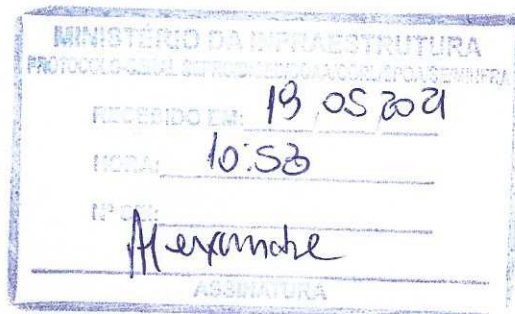 MINISTÉRIO DA INFRAESTRUTURA
PROTOCOLO GERAL
RECEBIDO EM: 19 05 2021
HORA: 10:53
Nº SEI:
Alexandre
ASSINATURA